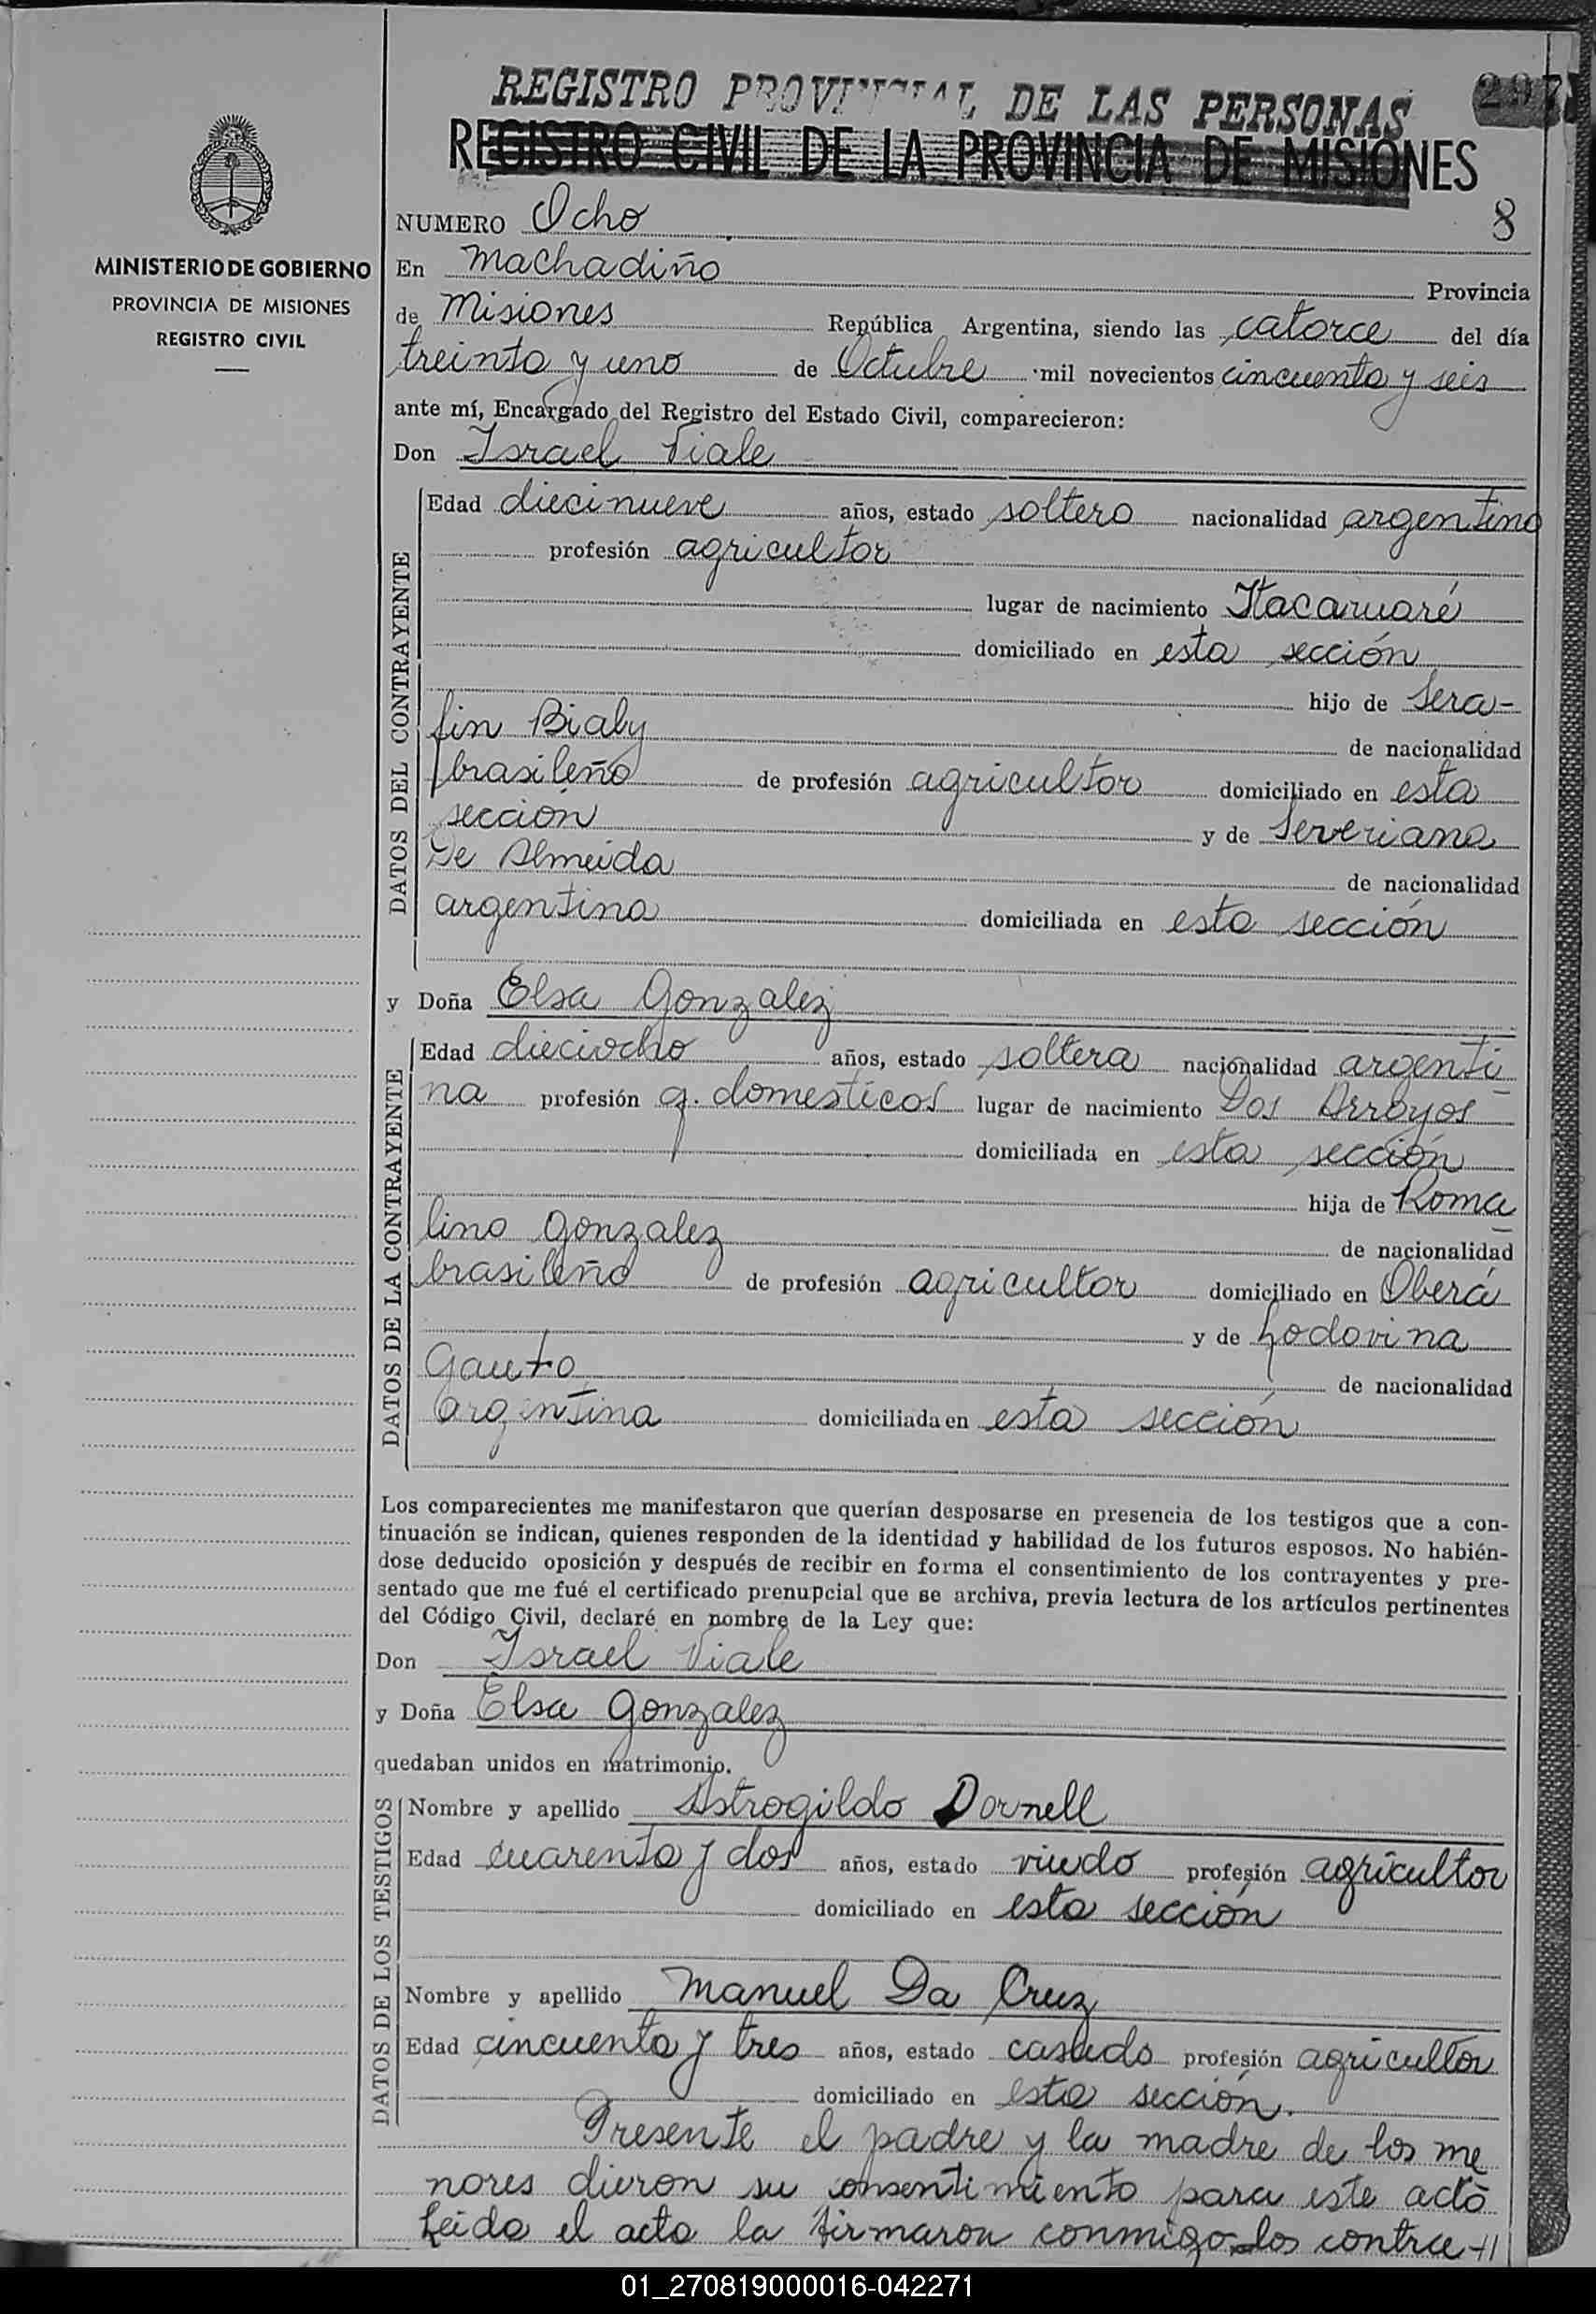 REGISTRO PROVINCIAL DE LAS PERSONAS
REGISTRO CIVIL DE LA PROVINCIA DE MISIONES
MINISTERIO DE GOBIERNO
PROVINCIA DE MISIONES
REGISTRO CIVIL
NUMERO Ocho 8
En Machadiño Provincia
de Misiones República Argentina, siendo las catorce del día
treinta y uno de Octubre mil novecientos cincuenta y seis
ante mí, Encargado del Registro del Estado Civil, comparecieron:
Don Israel Viale
DATOS DEL CONTRAYENTE
Edad diecinueve años, estado soltero nacionalidad argentino
profesión agricultor
lugar de nacimiento Itacaruaré
domiciliado en esta sección
hijo de Sera-
fin Bialy de nacionalidad
brasileño de profesión agricultor domiciliado en esta
sección y de Severiana
De Almeida de nacionalidad
argentina domiciliada en esta sección
y Doña Elsa Gonzalez
DATOS DE LA CONTRAYENTE
Edad dieciocho años, estado soltera nacionalidad argenti
na profesión q. domesticos lugar de nacimiento Dos Arroyos
domiciliada en esta sección
hija de Roma
lino Gonzalez de nacionalidad
brasileño de profesión agricultor domiciliado en Oberá
y de Lodovina
Gauto de nacionalidad
argentina domiciliada en esta sección
Los comparecientes me manifestaron que querían desposarse en presencia de los testigos que a con-
tinuación se indican, quienes responden de la identidad y habilidad de los futuros esposos. No habién-
dose deducido oposición y después de recibir en forma el consentimiento de los contrayentes y pre-
sentado que me fué el certificado prenupcial que se archiva, previa lectura de los artículos pertinentes
del Código Civil, declaré en nombre de la Ley que:
Don Israel Viale
y Doña Elsa Gonzalez
quedaban unidos en matrimonio.
DATOS DE LOS TESTIGOS
Nombre y apellido Astrogildo Dornell
Edad cuarenta y dos años, estado viudo profesión agricultor
domiciliado en esta sección
Nombre y apellido Manuel Da Cruz
Edad cincuenta y tres años, estado casado profesión agricultor
domiciliado en esta sección.
Presente el padre y la madre de los me
nores dieron su consentimiento para este acto
Leida el acta la firmaron conmigo los contra
01_270819000016-042271